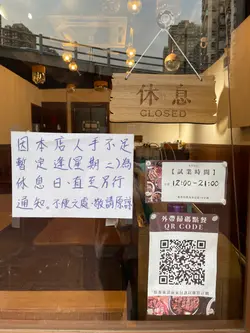 休息
CLOSED
因本店人手不足
暫定逢(星期二)為
休息日,直至另行
通知。不便之處,敬請原諒
【試業時間】
12:00-21:00
外帶掃碼點餐
QR CODE